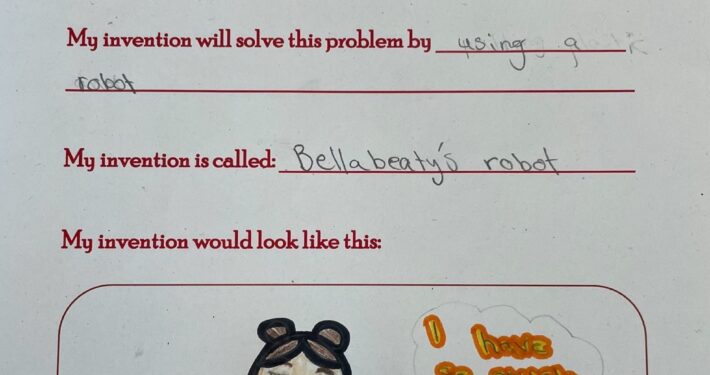 My invention will solve this problem by using a
robot
My invention is called: Bellabeaty's robot
My invention would look like this:
I have